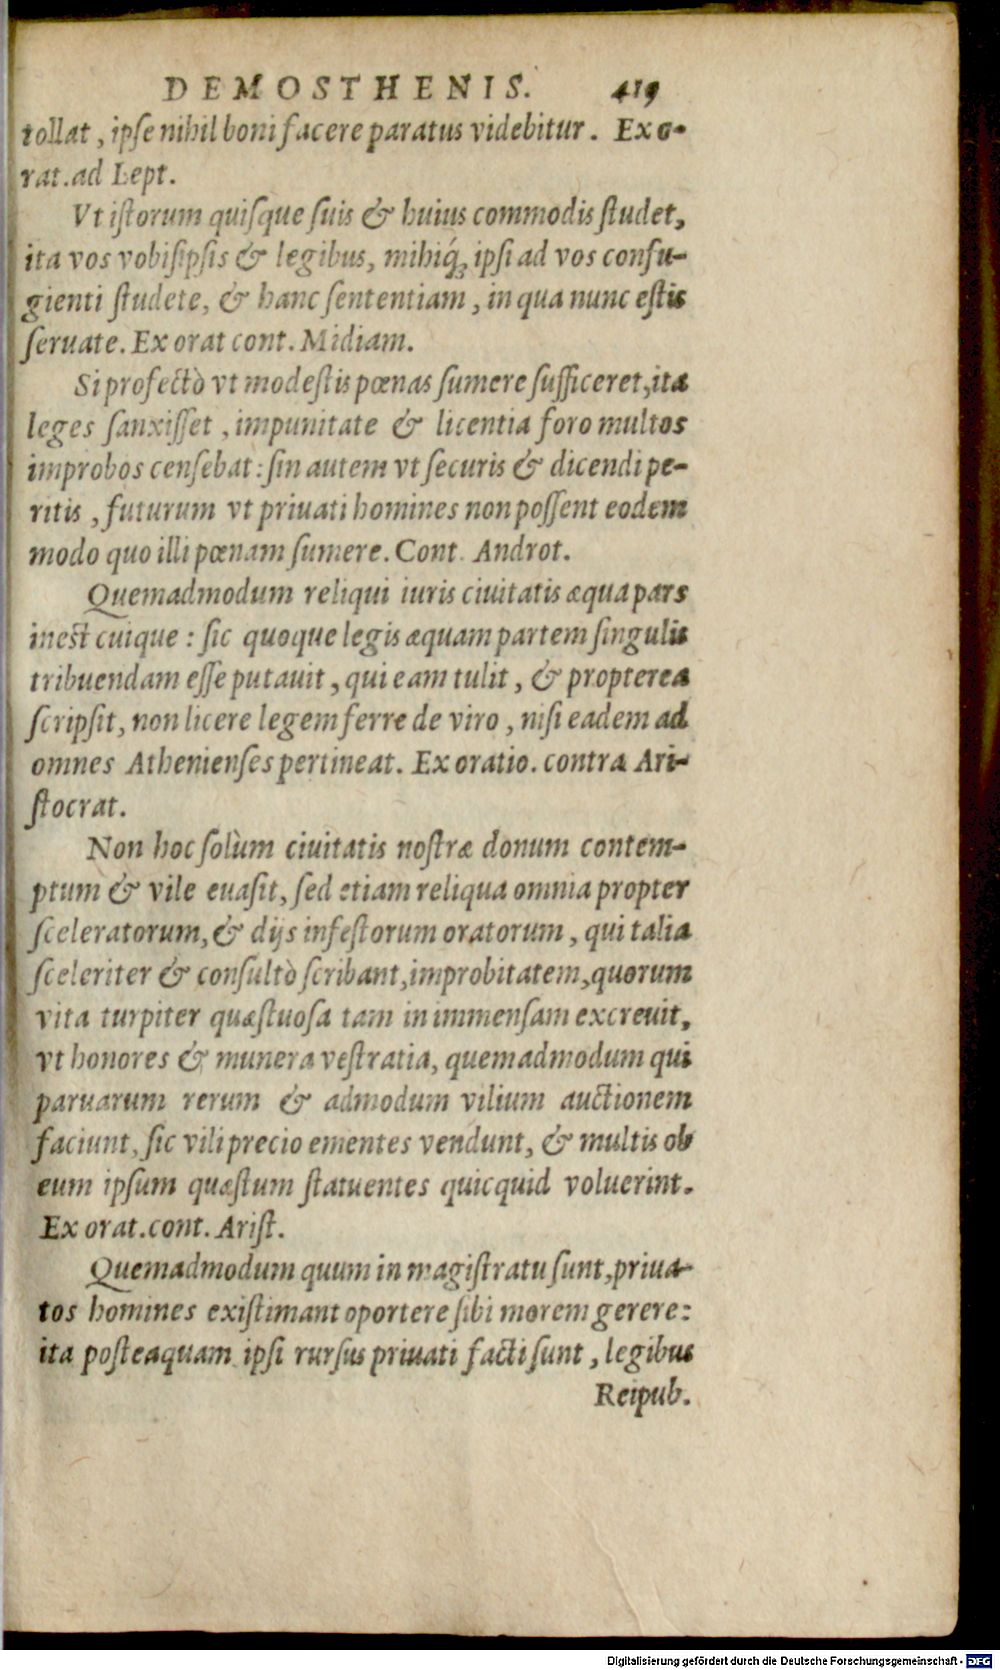 DEMOSTHENIS. 419
tollat, ipſe nihil boni facere paratus videbitur. Ex o-
rat. ad Lept.
Vt iſtorum quiſque ſuis & huius commodis ſtudet,
ita vos vobiſipſis & legibus, mihiq́ꝫ ipſi ad vos confu-
gienti ſtudete, & hanc ſententiam, in qua nunc eſtis
ſeruate. Ex orat cont. Midiam.
Si profectò vt modeſtis pœnas ſumere ſufficeret, ita
leges ſanxiſſet, impunitate & licentia foro multos
improbos censebat: ſin autem vt ſecuris & dicendi pe-
ritis, futurum vt priuati homines non poſſent eodem
modo quo illi pœnam ſumere. Cont. Androt.
Quemadmodum reliqui iuris ciuitatis æqua pars
inest cuique: ſic quoque legis æquam partem ſingulis
tribuendam eſſe putauit, qui eam tulit, & propterea
ſcripſit, non licere legem ferre de viro, niſi eadem ad
omnes Athenienſes pertineat. Ex oratio. contra Ari-
ſtocrat.
Non hoc ſolùm ciuitatis noſtræ donum contem-
ptum & vile euaſit, ſed etiam reliqua omnia propter
ſceleratorum, & dijs infeſtorum oratorum, qui talia
ſceleriter & conſultò ſcribant, improbitatem, quorum
vita turpiter quæſtuoſa tam in immenſam excreuit,
vt honores & munera veſtratia, quemadmodum qui
paruarum rerum & admodum vilium auctionem
faciunt, ſic vili precio ementes vendunt, & multis ob
eum ipſum quæſtum ſtatuentes quicquid voluerint.
Ex orat. cont. Ariſt.
Quemadmodum quum in magiſtratu ſunt, priua-
tos homines exiſtimant oportere ſibi morem gerere:
ita poſteaquam ipſi rurſus priuati facti ſunt, legibus
Reipub.
Digitalisierung gefördert durch die Deutsche Forschungsgemeinschaft - DFG